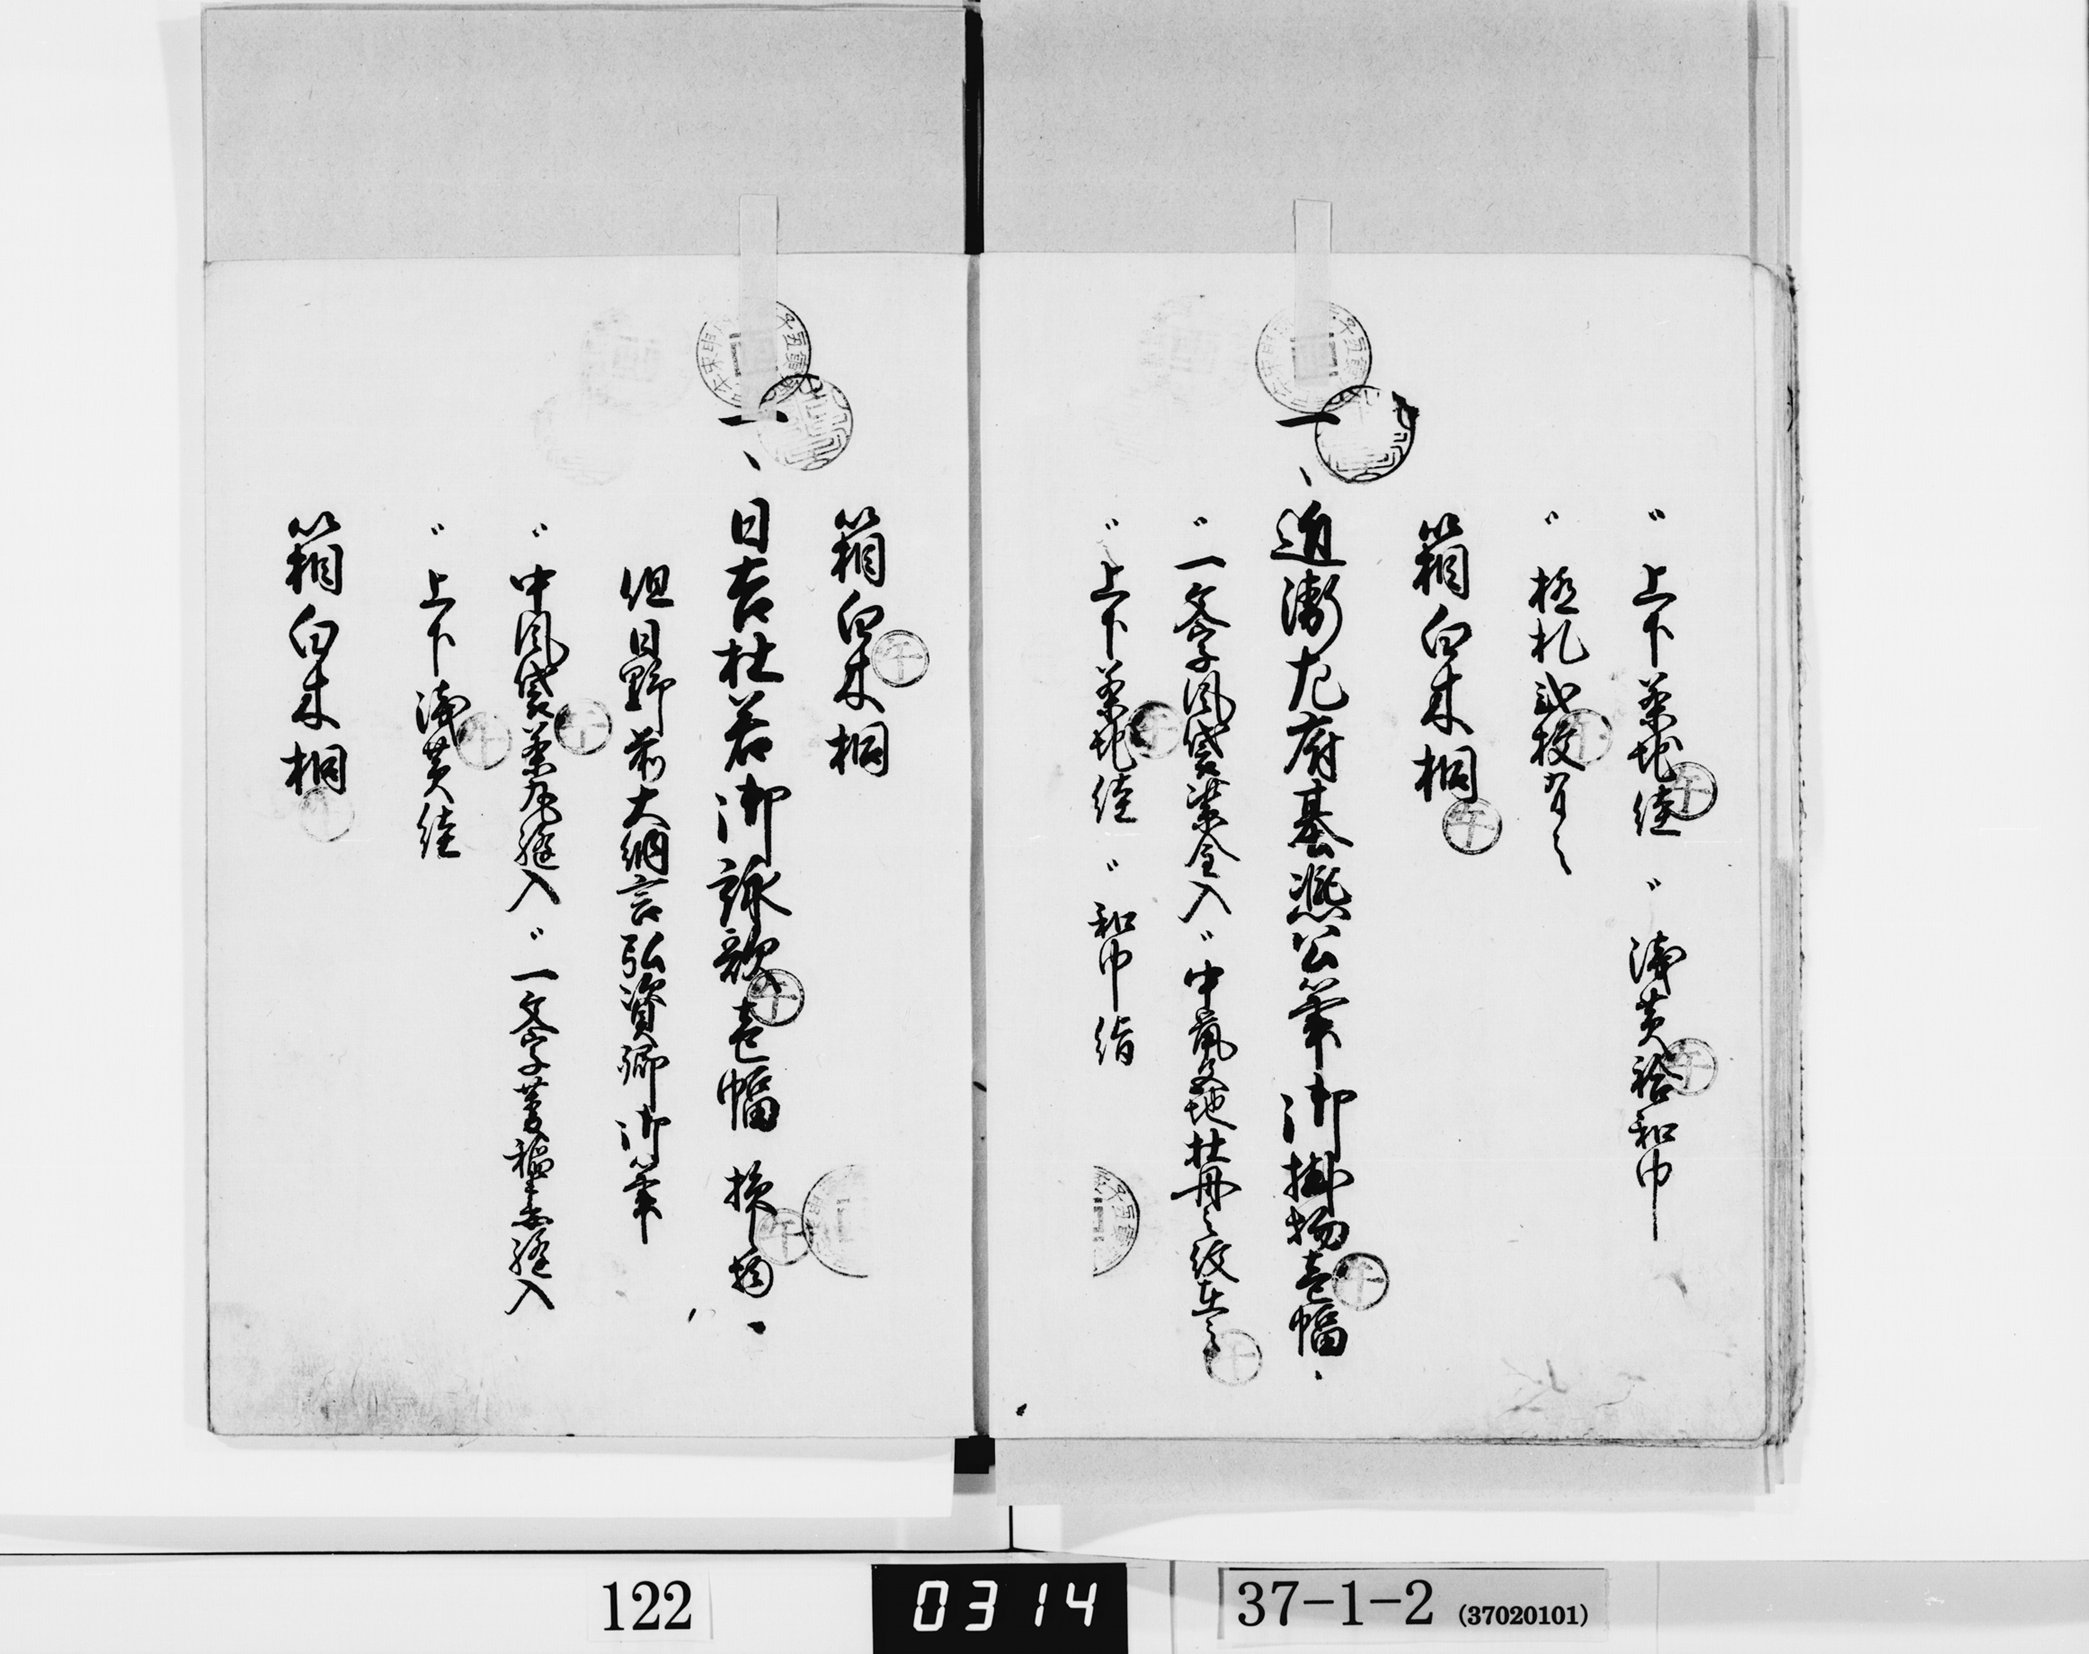 〃上下茶地絓　〃浅黄袷和巾
〃極札弐枚有之
箱白木桐
一、近衛左府基熈公筆御掛物壱幅
〃一文字風袋紫金入〃中風通地牡丹之紋在之
〃上下茶地絓　〃和巾絹
箱白木桐
一、日吉社若御詠歌壱幅　掛物
但日野前大納言弘資卿御筆
〃中風袋茶丸縫入〃一文字萱縫入
〃上下浅黄絓
箱白木桐
122
0314
37-1-2 (37020101)